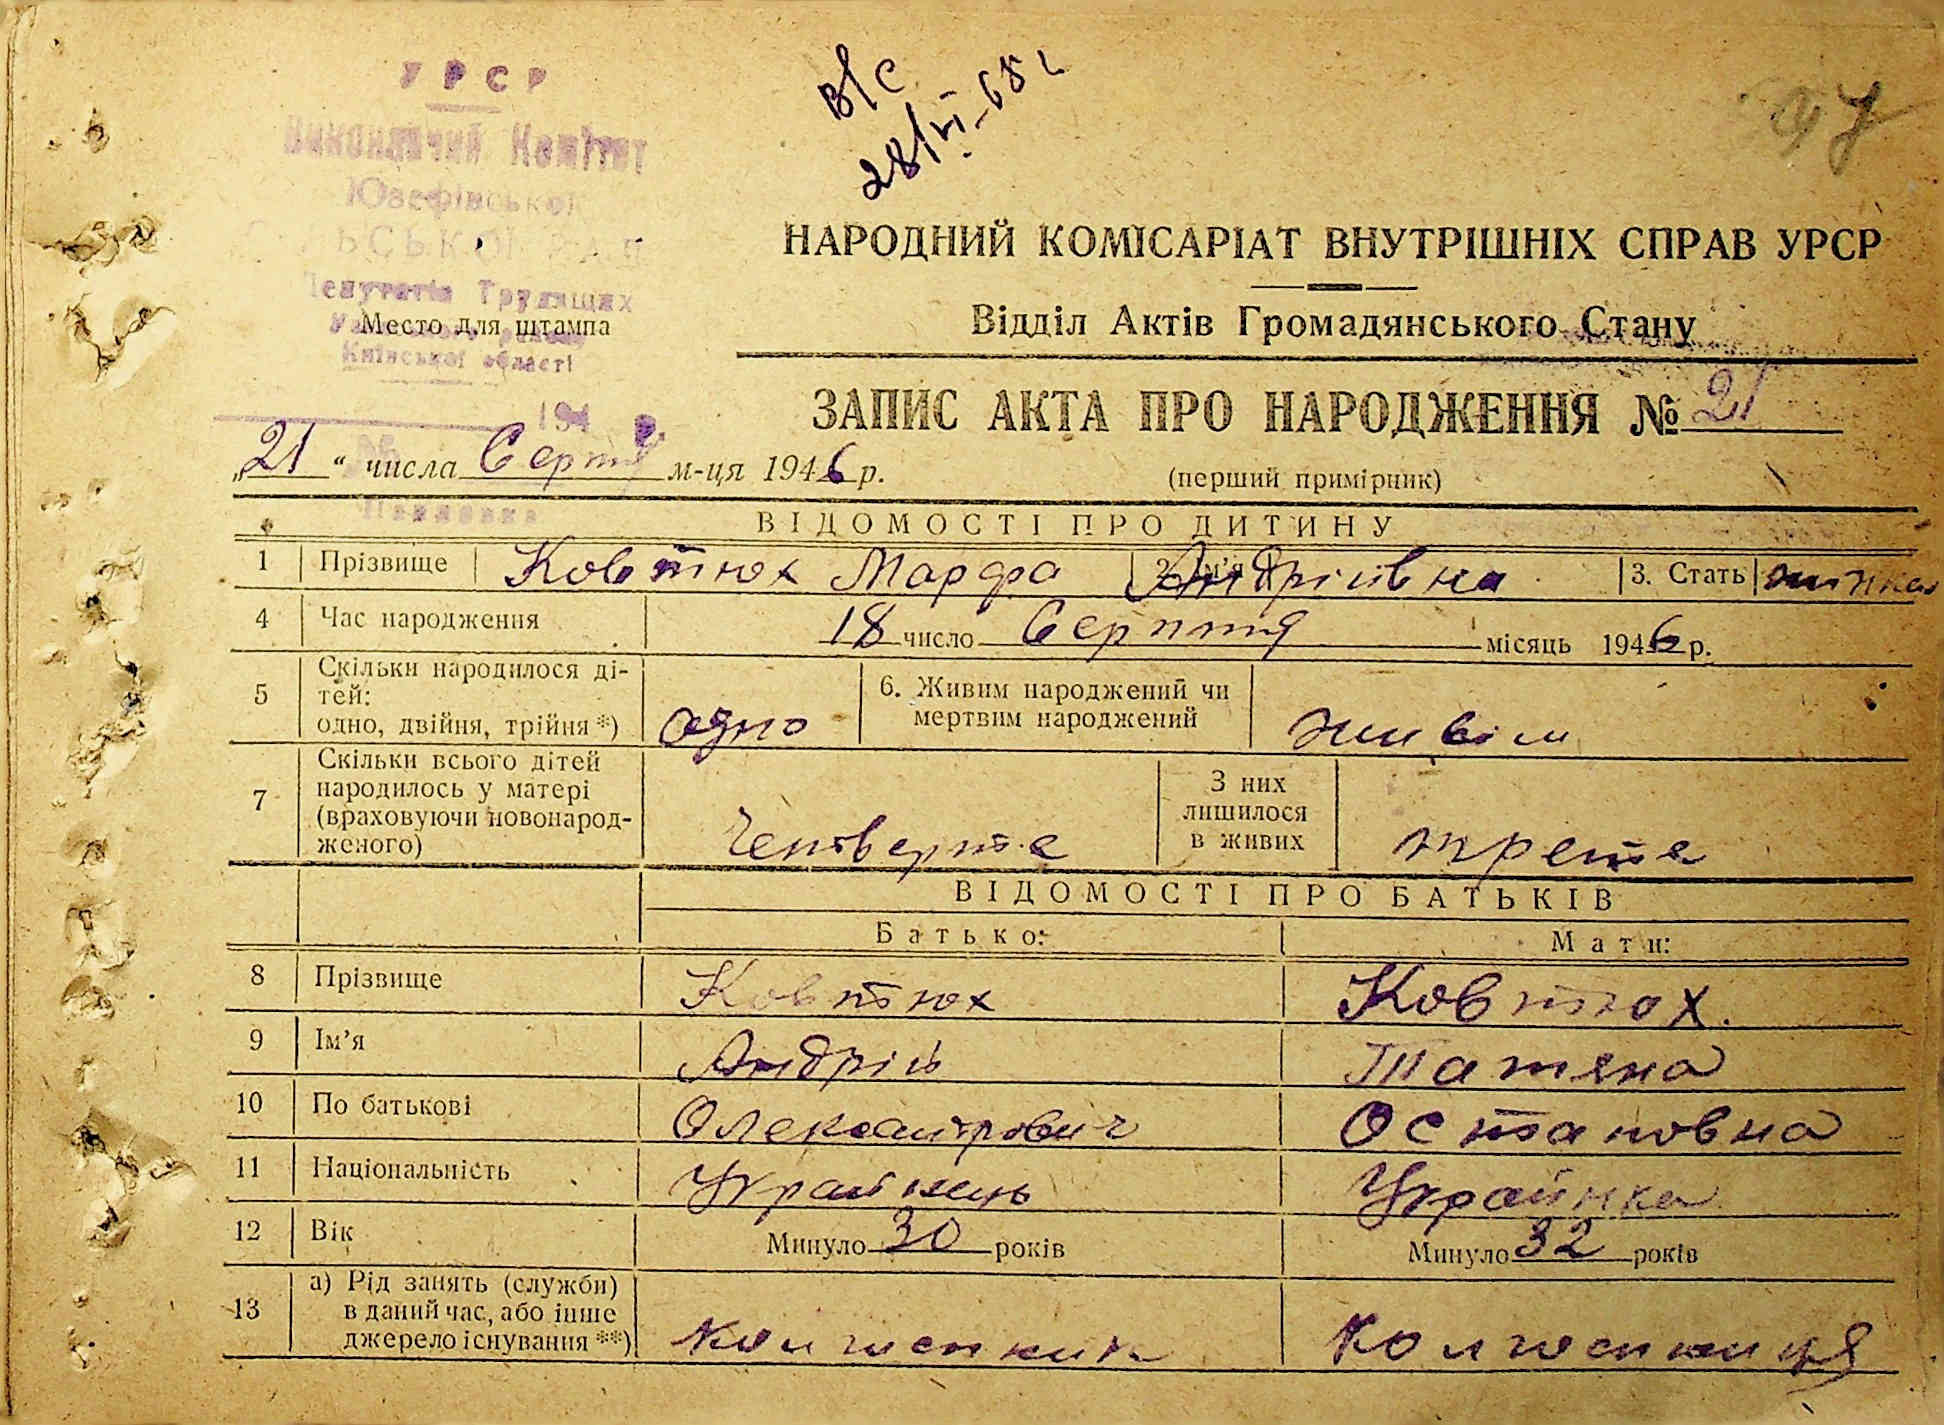 УРСР
Виконавчий Комітет
Юзефівської
Депутатів Трудящих
Место для штампа
Київської області
194
В/С
28/VI-68 г
97
НАРОДНИЙ КОМІСАРІАТ ВНУТРІШНІХ СПРАВ УРСР
Відділ Актів Громадянського Стану
ЗАПИС АКТА ПРО НАРОДЖЕННЯ № 21
„21“ числа Серпня м-ця 1946 р.
(перший примірник)
ВІДОМОСТІ ПРО ДИТИНУ
1 Прізвище Ковтюх Марфа 2. Ім'я Андріївна 3. Стать жінка
4 Час народження 18 число Серпня місяць 1946 р.
5 Скільки народилося ді-
тей:
одно, двійня, трійня *) одно
6. Живим народжений чи
мертвим народжений живім
7 Скільки всього дітей
народилось у матері
(враховуючи новонарод-
женого) Четверте
З них
лишилося
в живих трете
ВІДОМОСТІ ПРО БАТЬКІВ
Батько: Мати:
8 Прізвище Ковтюх Ковтюх.
9 Ім'я Андрій Татяна
10 По батькові Олександрович Остаповна
11 Національність Українець Українка
12 Вік Минуло 30 років Минуло 32 років
13 а) Рід занять (служби)
в даний час, або інше
джерело існування **) колгоспник колгоспниця